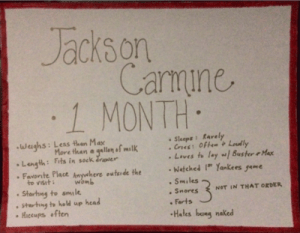 Jackson
Carmine
• 1 MONTH •
• Weighs: Less than Max
More than a gallon of milk
• Length: Fits in sock drawer
• Favorite Place Anywhere outside the
to visit: womb
• Starting to smile
• Starting to hold up head
• Hiccups often
• Sleeps: Rarely
• Cries: Often & Loudly
• Loves to lay w/ Buster & Max
• Watched 1st Yankees game
• Smiles
• Snores } NOT IN THAT ORDER
• Farts
• Hates being naked